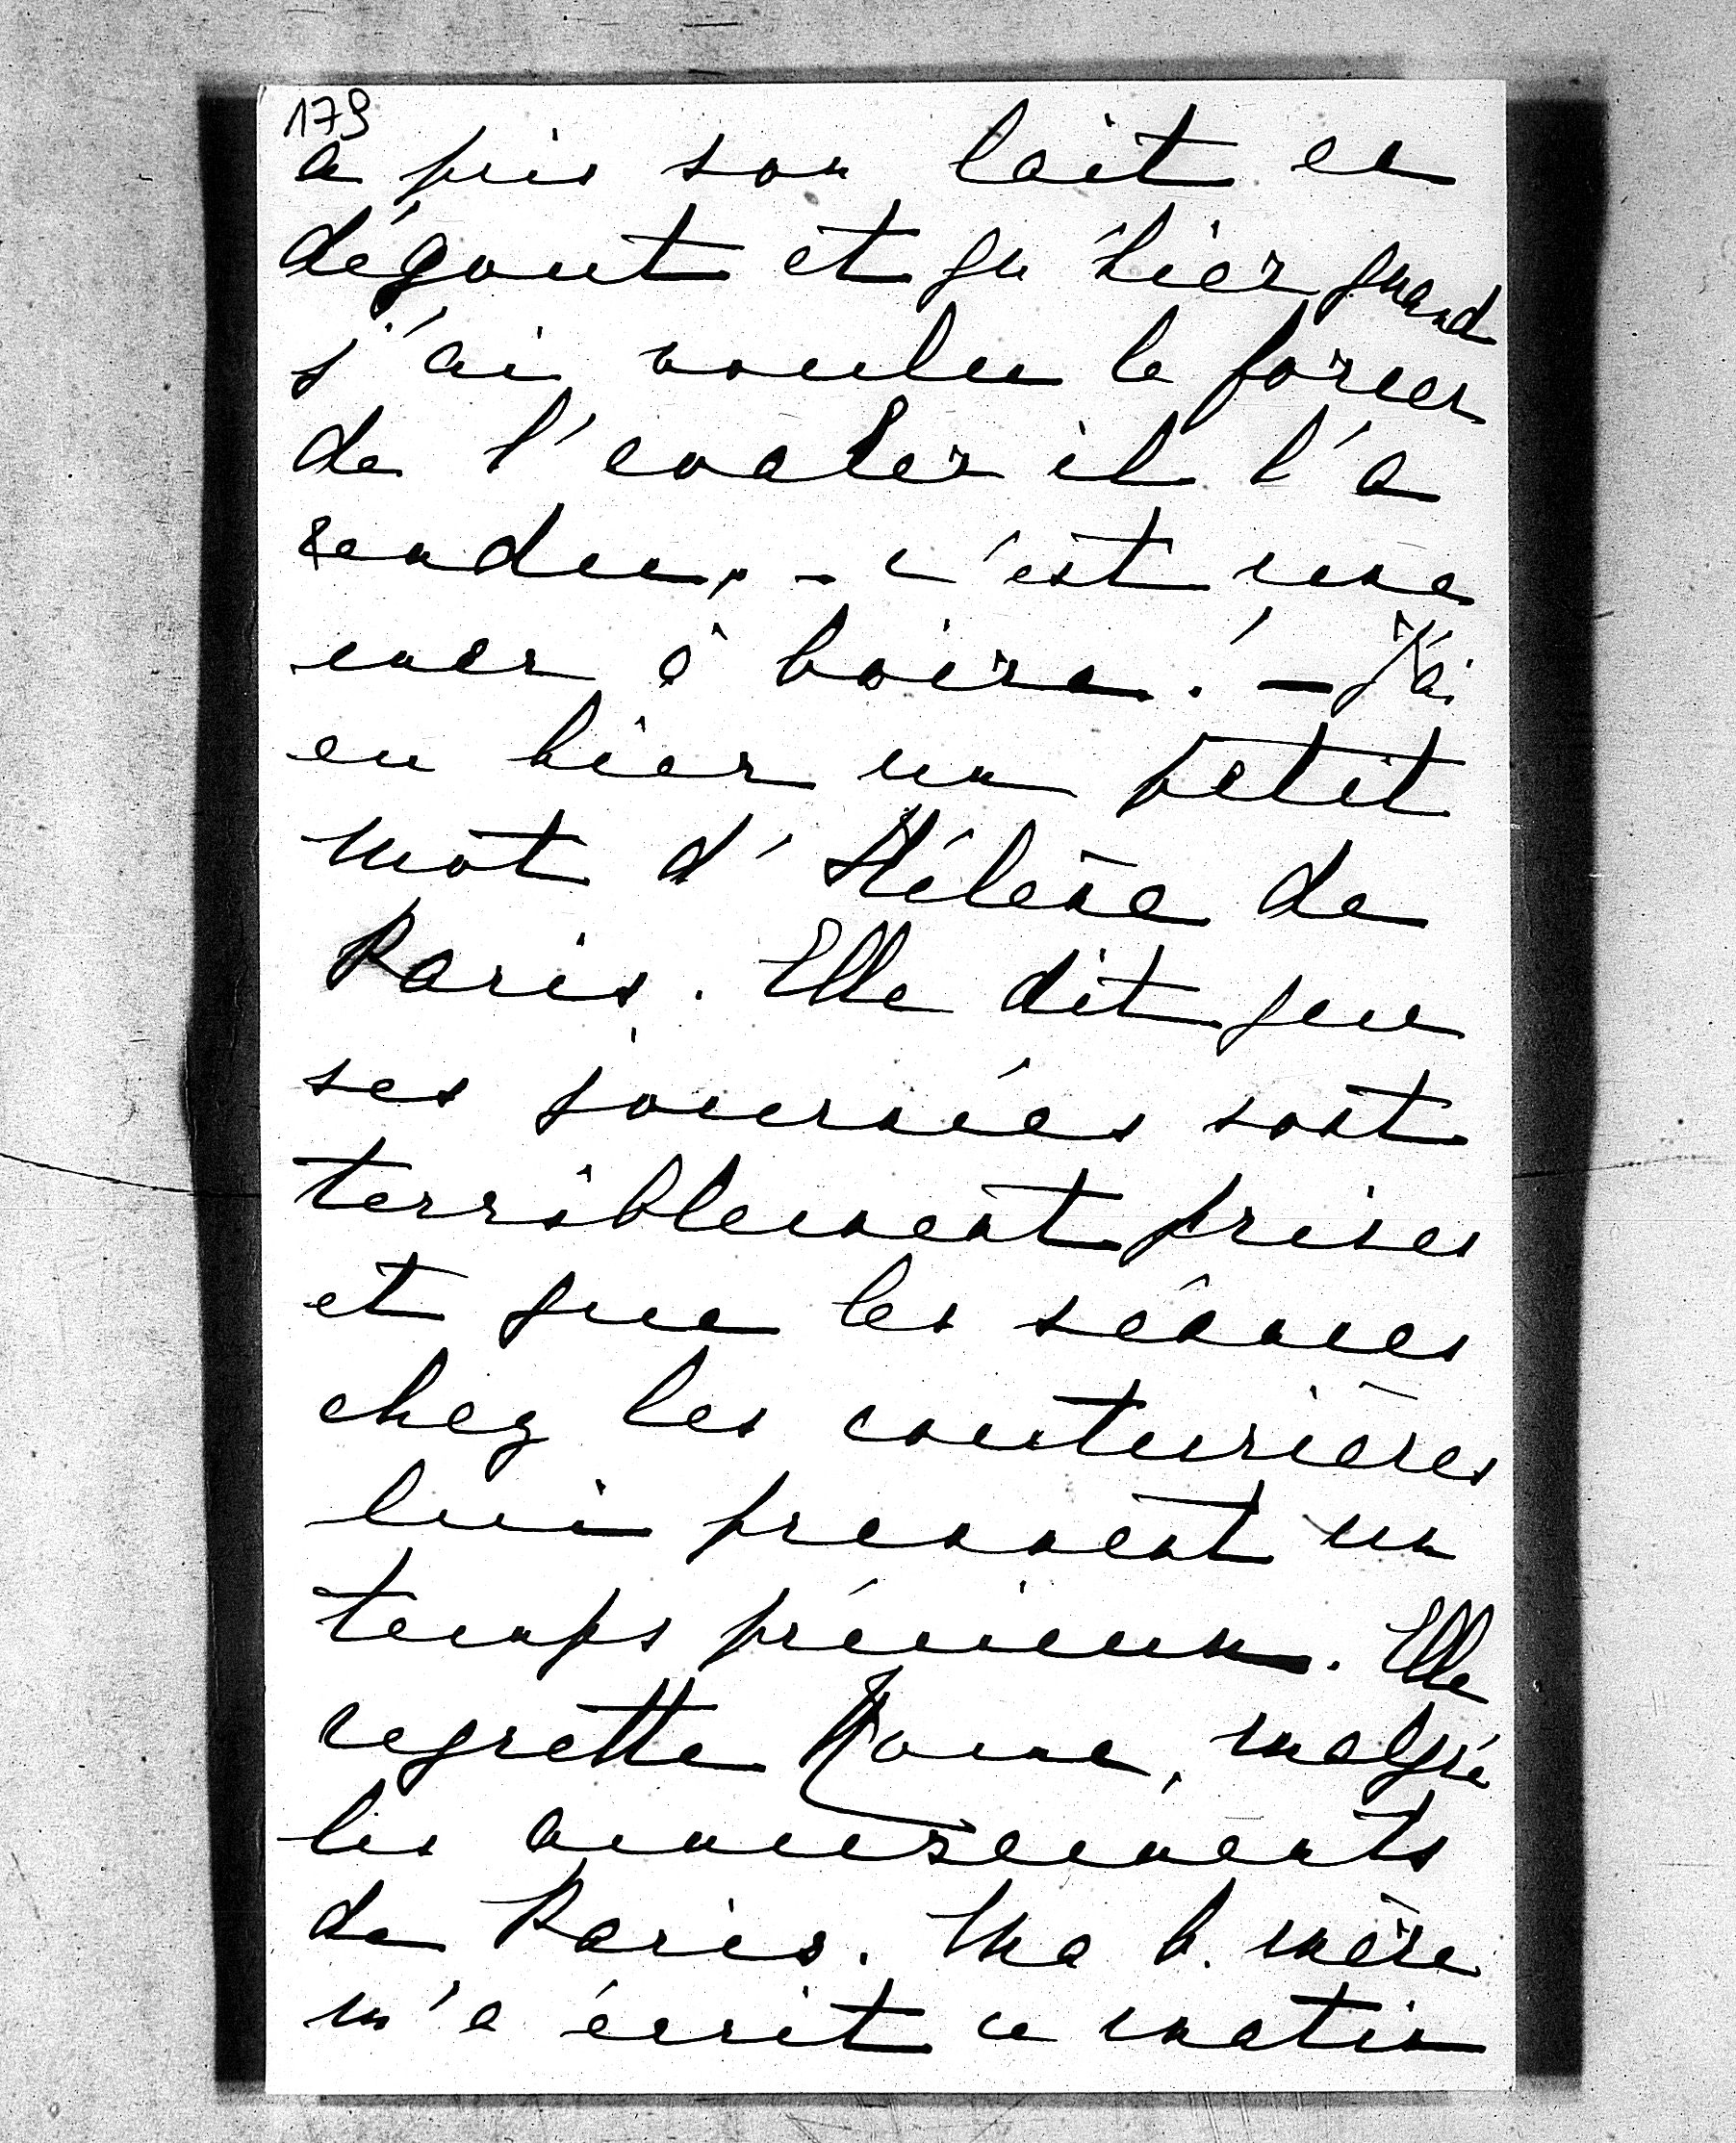 179
a pris son lait en
dégout et qu'hier quand
j'ai voulu le forcer
de l'avaler il l'a
rendu, - c'est une
mer à boire! - J'ai
eu hier un petit
mot d'Hélène de
Paris. Elle dit que
ses journées sont
terriblement prises
et que les séances
chez les couturières
lui prennent un
temps précieux. Elle
regrette Rome, malgré
les amusements
de Paris. Ma b. mère
m'a écrit ce matin